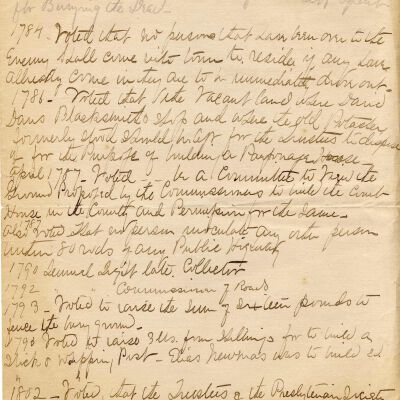 for Burying the Dead
1784. Voted that no persons that has been over to the
Enemy shall come into town to reside, if any have
allready come in they are to be immediately drove out.
1786 - Voted that the Vacant land where David
Blacksmiths Shop and where the old
formerly stood should be for the Trustees to dispose
of for the Purpose of building a Parsonage House
April 1787. Voted - be a Committee to View the
Ground Proposed by the Commissioners to build the Court
House in the County and Permission for the Same
also Voted that no person inoculate any other person
within 80 rods of any Public
1790 late Collector
1792 " " Commissioner of Roads
1793 - Voted to raise the Sum of pounds to
fence the bury ground.
Voted to raise Shillings for to build a
& Whipping Post - was to build it
1802 - Voted, that the Trustees of the Presbyterian Society